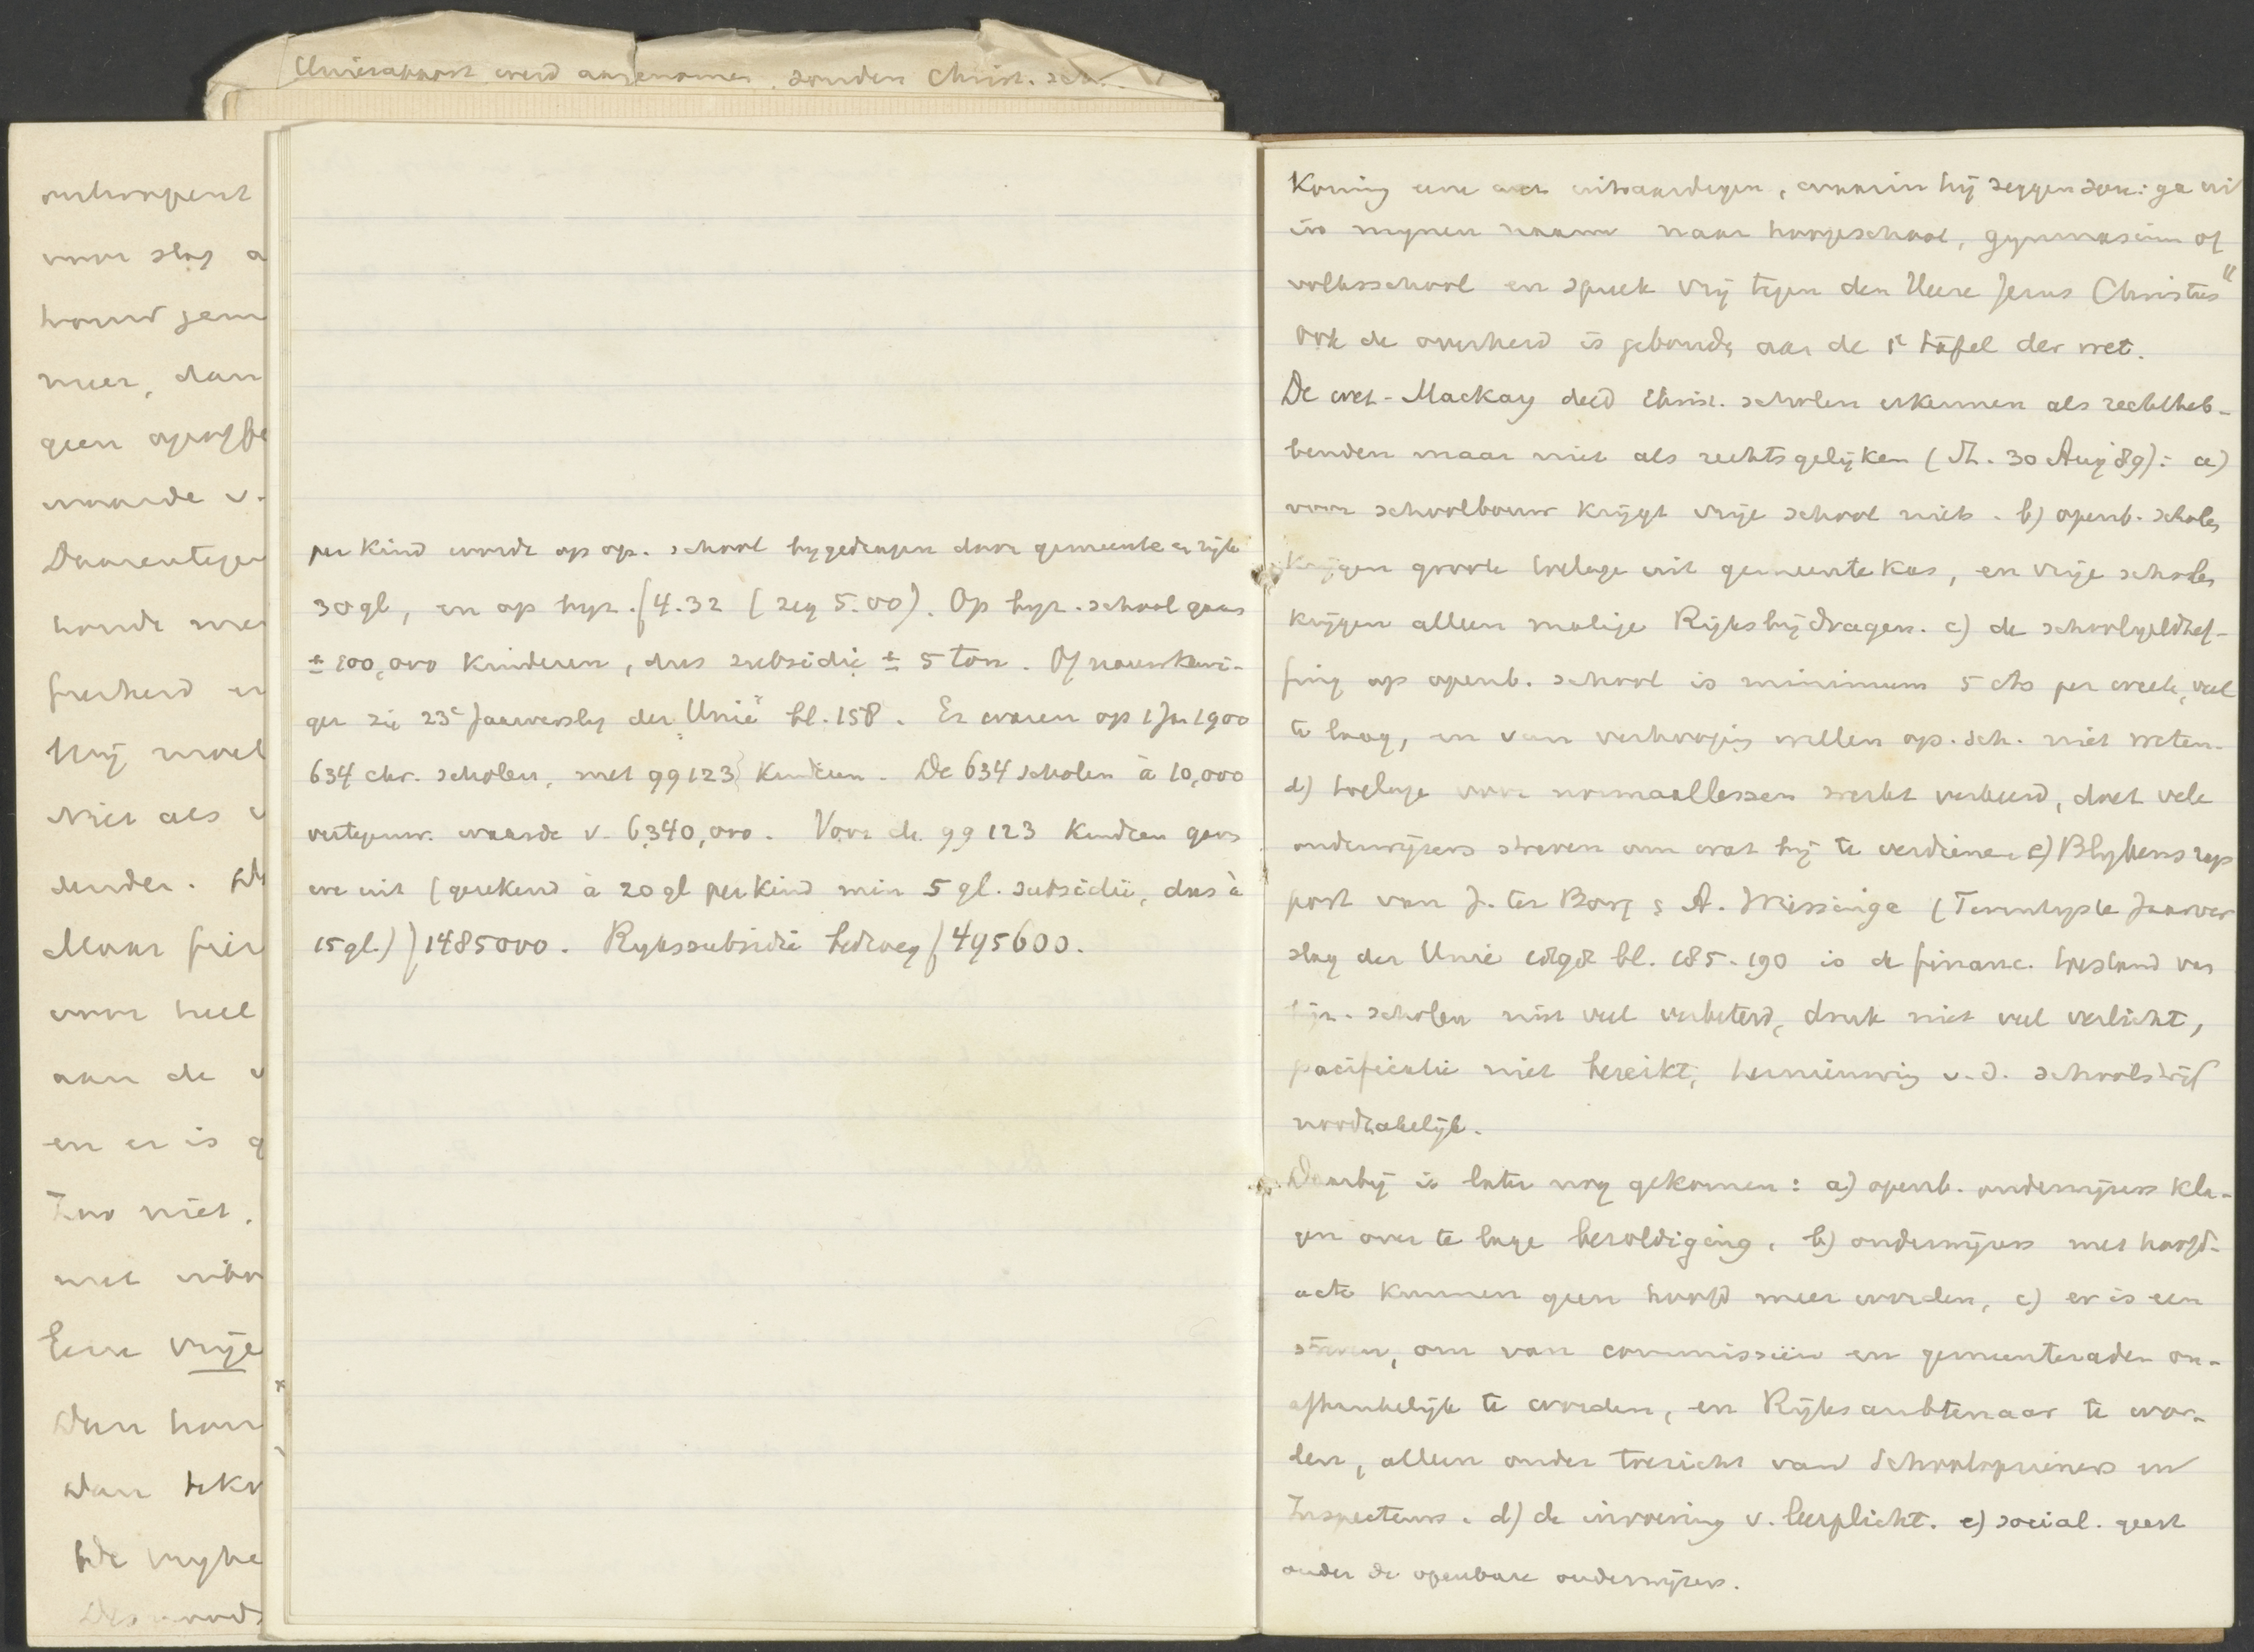 Unierapport werd aangenomen. zonden Christ. sch.
onthoopent
voor slag a
houd jem
meer, dan
geen
waarde v.
Daarentegen
honde me
frerheid en
Hij moet
Niet als
dender.
Maar frir
voor heel
aan de v
en er is g
Zoo niet.
met
Eene vrije
Dan han
Dan
bde vryhe
Des noods
per kind wordt op op. school bygedragen door gemeente en rijk
30 gl, en op byz. ƒ4.32 (zeg 5.00). Op byz. school gaan
± 100,000 kinderen, dus subsidie ± 5 ton. Of nauwkeuri-
ger zie 23e Jaarverslag der "Unie" bl. 158. Er waren op 1 Jan 1900
634 chr. scholen, met 99123 kinderen. De 634 scholen à 10,000
vertegenw. waarde v. 6,340,000. Voor de 99123 kinderen gaven
we uit (gerekend à 20 gl per kind min 5 gl. subsidie, dus à
15 gl.) ƒ1485000. Rykssubsidie bedroeg ƒ495600.
Koning eene acte uitvaardigen, waarin hij zeggen zou: ga uit
in mynen naam naar hoogeschool, gymnasium of
volksschool en spreek vrij tegen den Heere Jezus Christus"
Ook de overheid is gebonden aan de 1e tafel der wet.
De wet-Mackay deed Christ. scholen erkennen als rechtheb-
benden maar niet als rechtsgelijken (St. 30 Aug 89): a)
voor schoolbouw krijgt vrije school niets. b) openb. scholen
krijgen groote toelage uit gemeentekas, en vrije scholen
krijgen alleen matige Rijksbijdragen. c) de schoolgeldhef-
fing op openb. school is minimum 5 cts per week, veel
te laag, en van verhooging willen op. sch. niet weten.
d) toelage voor normaallessen werkt verkeerd, doet vele
onderwijzers streven om wat bij te verdienen e) Blykens rap
port van J. ter Borg & A. Wissinge (Twintigste Jaarver
slag der Unie 1898 bl. 185-190 is de financ. toestand van
bijz. scholen niet veel verbeterd, druk niet veel verlicht,
pacificatie niet bereikt, vernieuwing v.d. schoolstrijd
noodzakelijk.
Daarbij is later nog gekomen: a) openb. onderwijzers kla-
gen over te lage bezoldiging. b) onderwijzers met hoofd-
acte kunnen geen hoofd meer worden, c) er is een
streven, om van commissiën en gemeenteraden on-
afhankelijk te worden, en Rijksambtenaar te wor-
den, alleen onder toezicht van Schoolopzieners en
Inspecteurs. d) de invoering v. leerplicht. e) social. geest
onder de openbare onderwijzers.